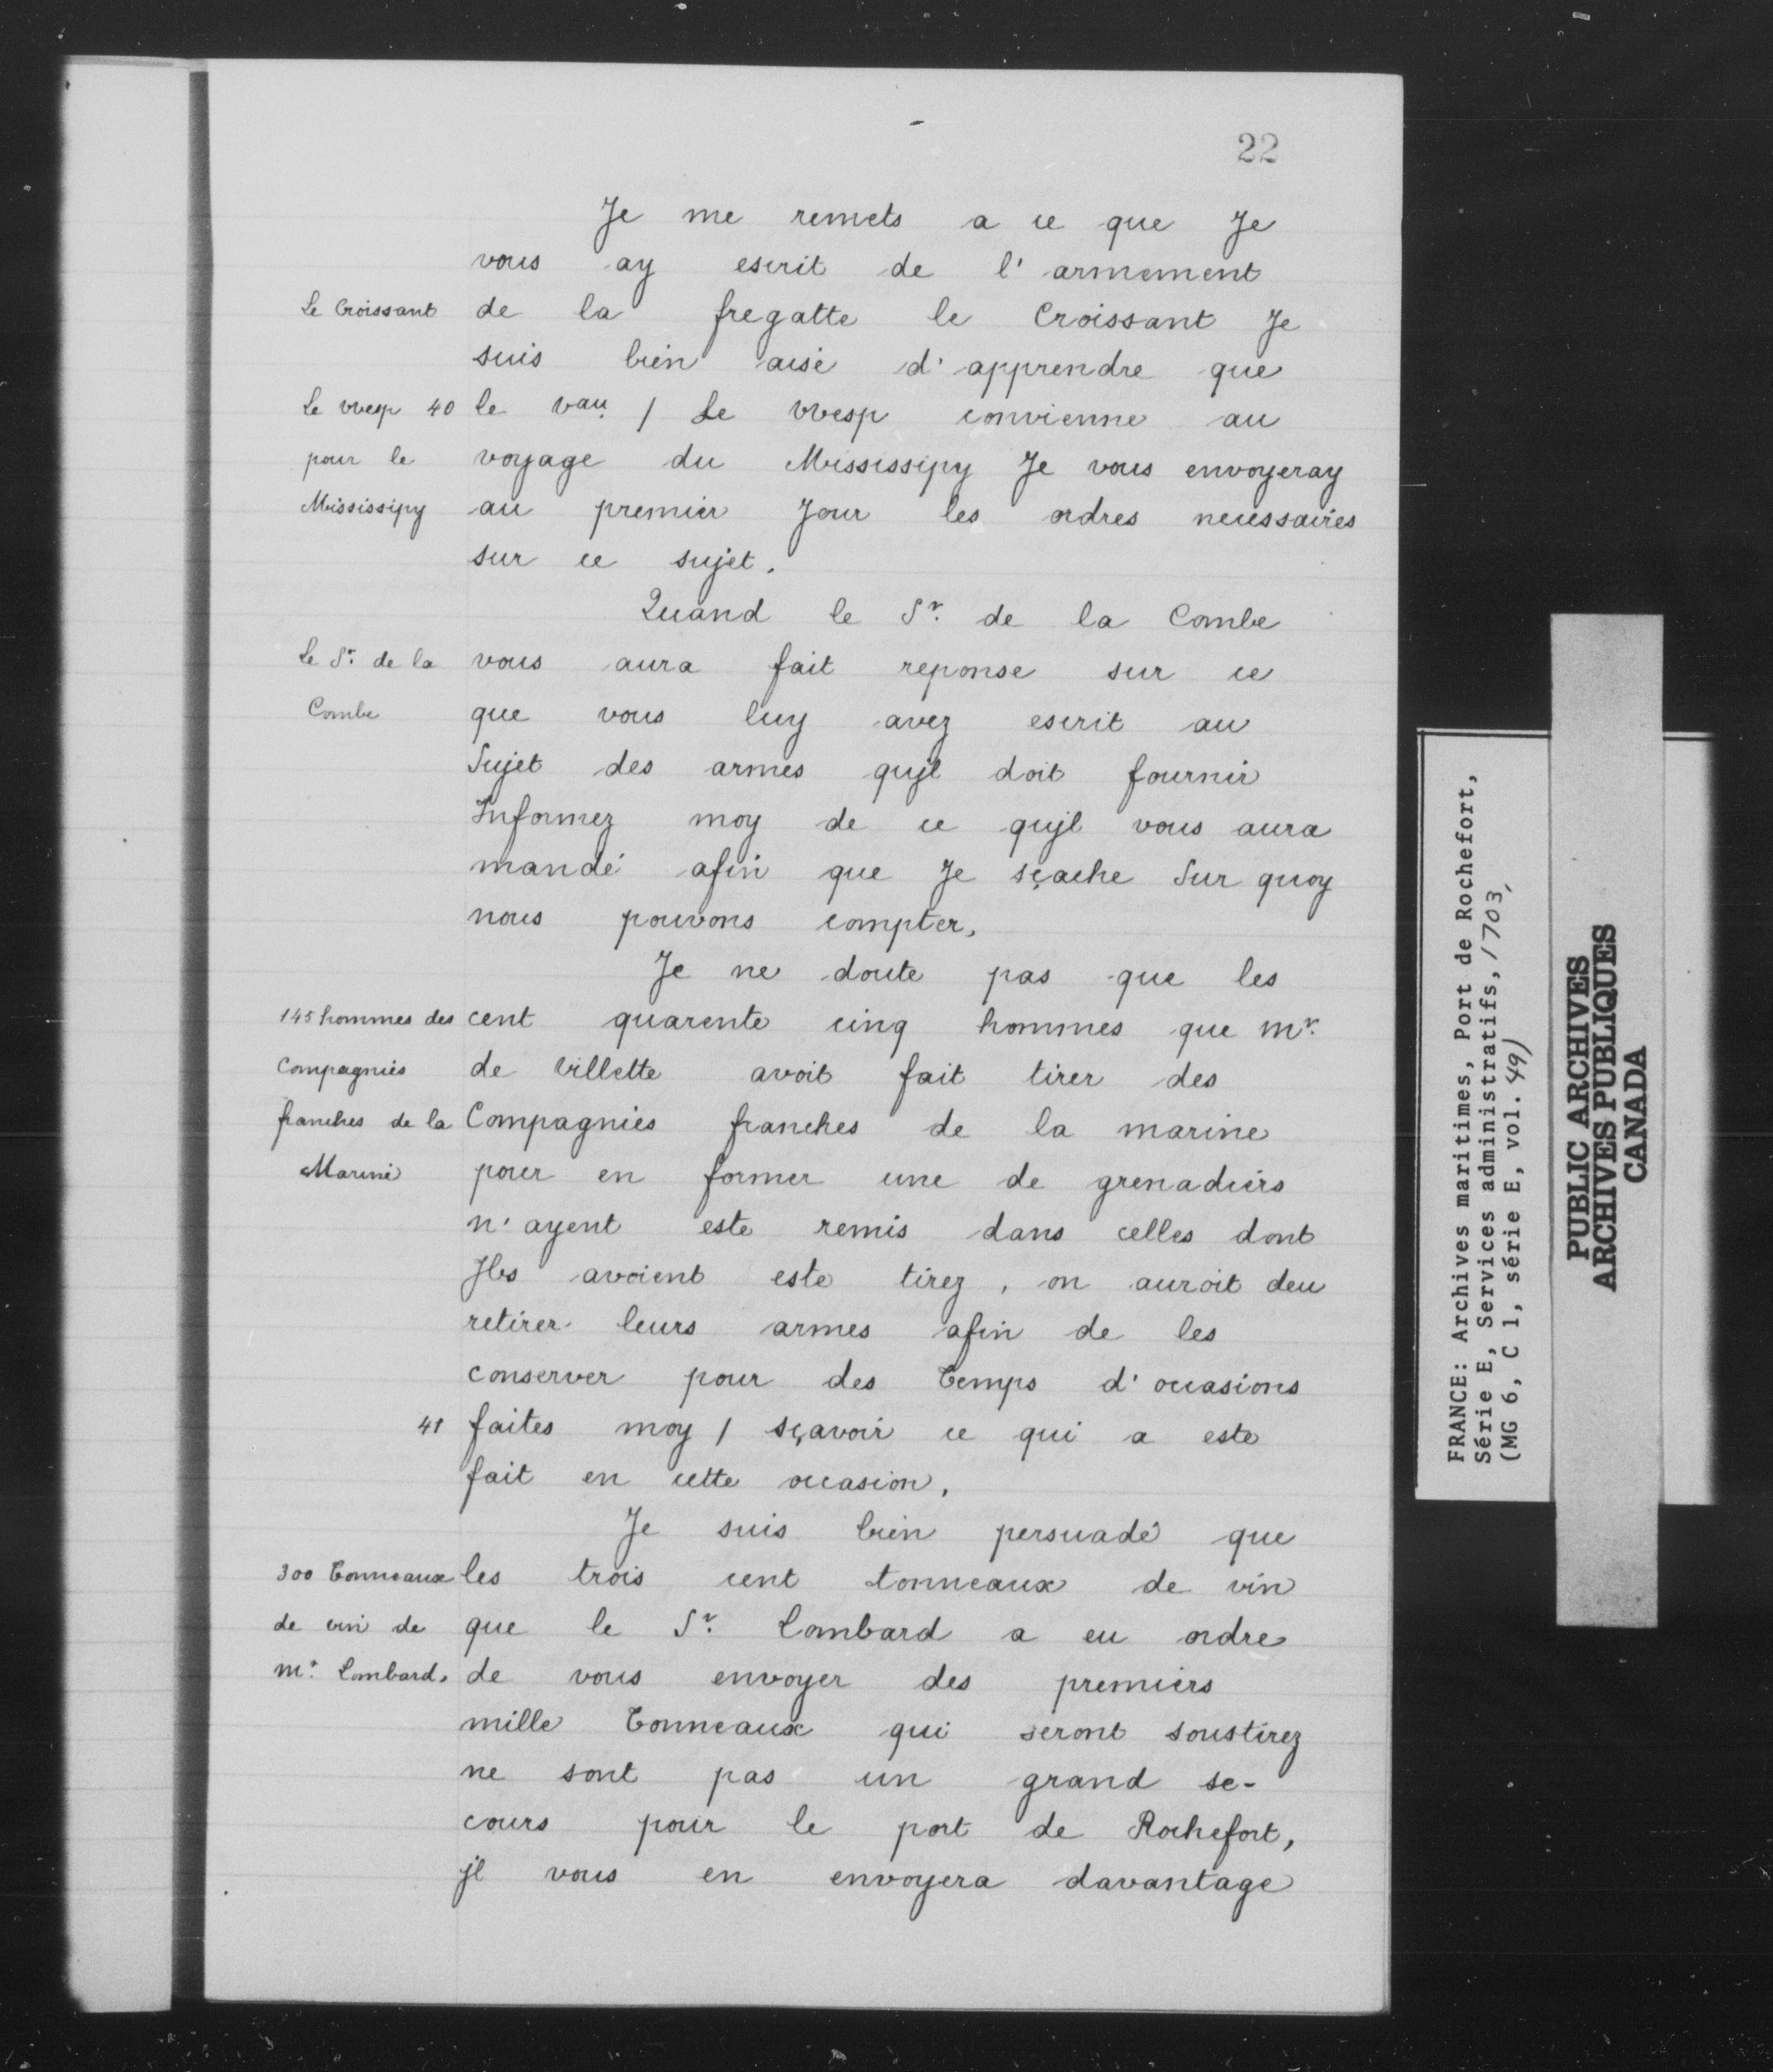 22
Je me remets a ce que Je
vous ay escrit de l'armement
Le Croissant de la fregatte le Croissant Je
suis bien aise d'apprendre que
Le vvesp 40 le vau / Le vvesp convienne au
pour le voyage du Mississipy Je vous envoyeray
Mississipy au premier Jour les ordres necessaires
sur ce sujet.
Quand le Sr. de la Combe
Le Sr. de la vous aura fait reponse sur ce
Combe que vous luy avez escrit au
Sujet des armes qujl doit fournir
Informez moy de ce qujl vous aura
mandé afin que Je sçache Sur quoy
nous pouvons compter,
Je ne doute pas que les
145 hommes des cent quarente cinq hommes que mr.
Compagnies de Villette avoit fait tirer des
franches de la Compagnies franches de la marine
Marine pour en former une de grenadiers
n'ayent este remis dans celles dont
Jls avoient este tirez, on auroit deu
retirer leurs armes afin de les
conserver pour des Temps d'occasions
41 faites moy / sçavoir ce qui a este
fait en cette occasion.
Je suis bien persuadé que
300 Tonneaux les trois cent tonneaux de vin
de vin de que le Sr. Lombard a eu ordre
mr. Lombard. de vous envoyer des premiers
mille Tonneaux qui seront soustirez
ne sont pas un grand se-
cours pour le port de Rochefort,
jl vous en envoyera davantage
FRANCE: Archives maritimes, Port de Rochefort,
Série E, Services administratifs, 1703,
(MG 6, C 1, série E, vol. 49)
PUBLIC ARCHIVES
ARCHIVES PUBLIQUES
CANADA